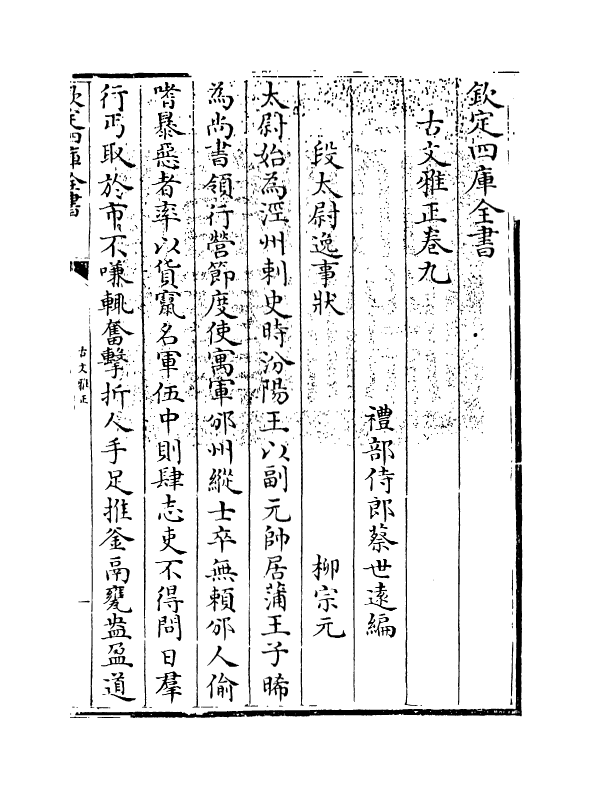 欽定四庫全書
古文雅正卷九
禮部侍郎蔡世遠編
段太尉逸事狀　柳宗元
太尉始為涇州刺史時汾陽王以副元帥居蒲王子晞
為尚書領行營節度使寓軍邠州縱士卒無賴邠人偷
嗜暴惡者率以貨竄名軍伍中則肆志吏不得問日羣
行丐取於市不嗛輒奮擊折人手足推釜鬲甕盎盈道
欽定四庫全書
古文雅正
一